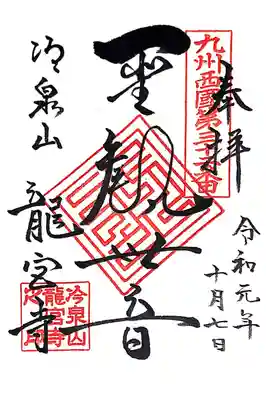 奉拝
九州西國第三十二番
令和元年
十月七日
聖觀世音
冷泉山
龍宮寺
冷泉山
龍宮寺
之印